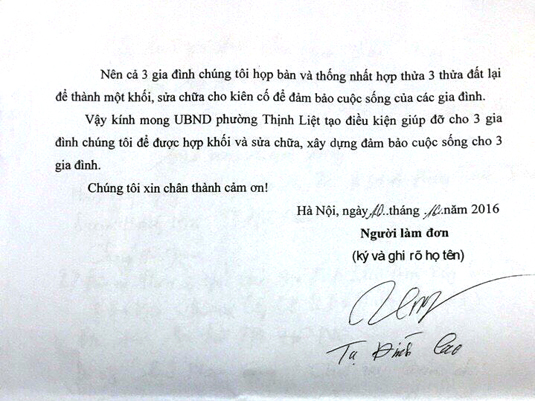 Nên cả 3 gia đình chúng tôi họp bàn và thống nhất hợp thửa 3 thửa đất lại
để thành một khối, sửa chữa cho kiên cố để đảm bảo cuộc sống của các gia đình.
Vậy kính mong UBND phường Thịnh Liệt tạo điều kiện giúp đỡ cho 3 gia
đình chúng tôi để được hợp khối và sửa chữa, xây dựng đảm bảo cuộc sống cho 3
gia đình.
Chúng tôi xin chân thành cảm ơn!
Hà Nội, ngày 10..tháng .10.năm 2016
Người làm đơn
(ký và ghi rõ họ tên)
Tạ Đình Cao